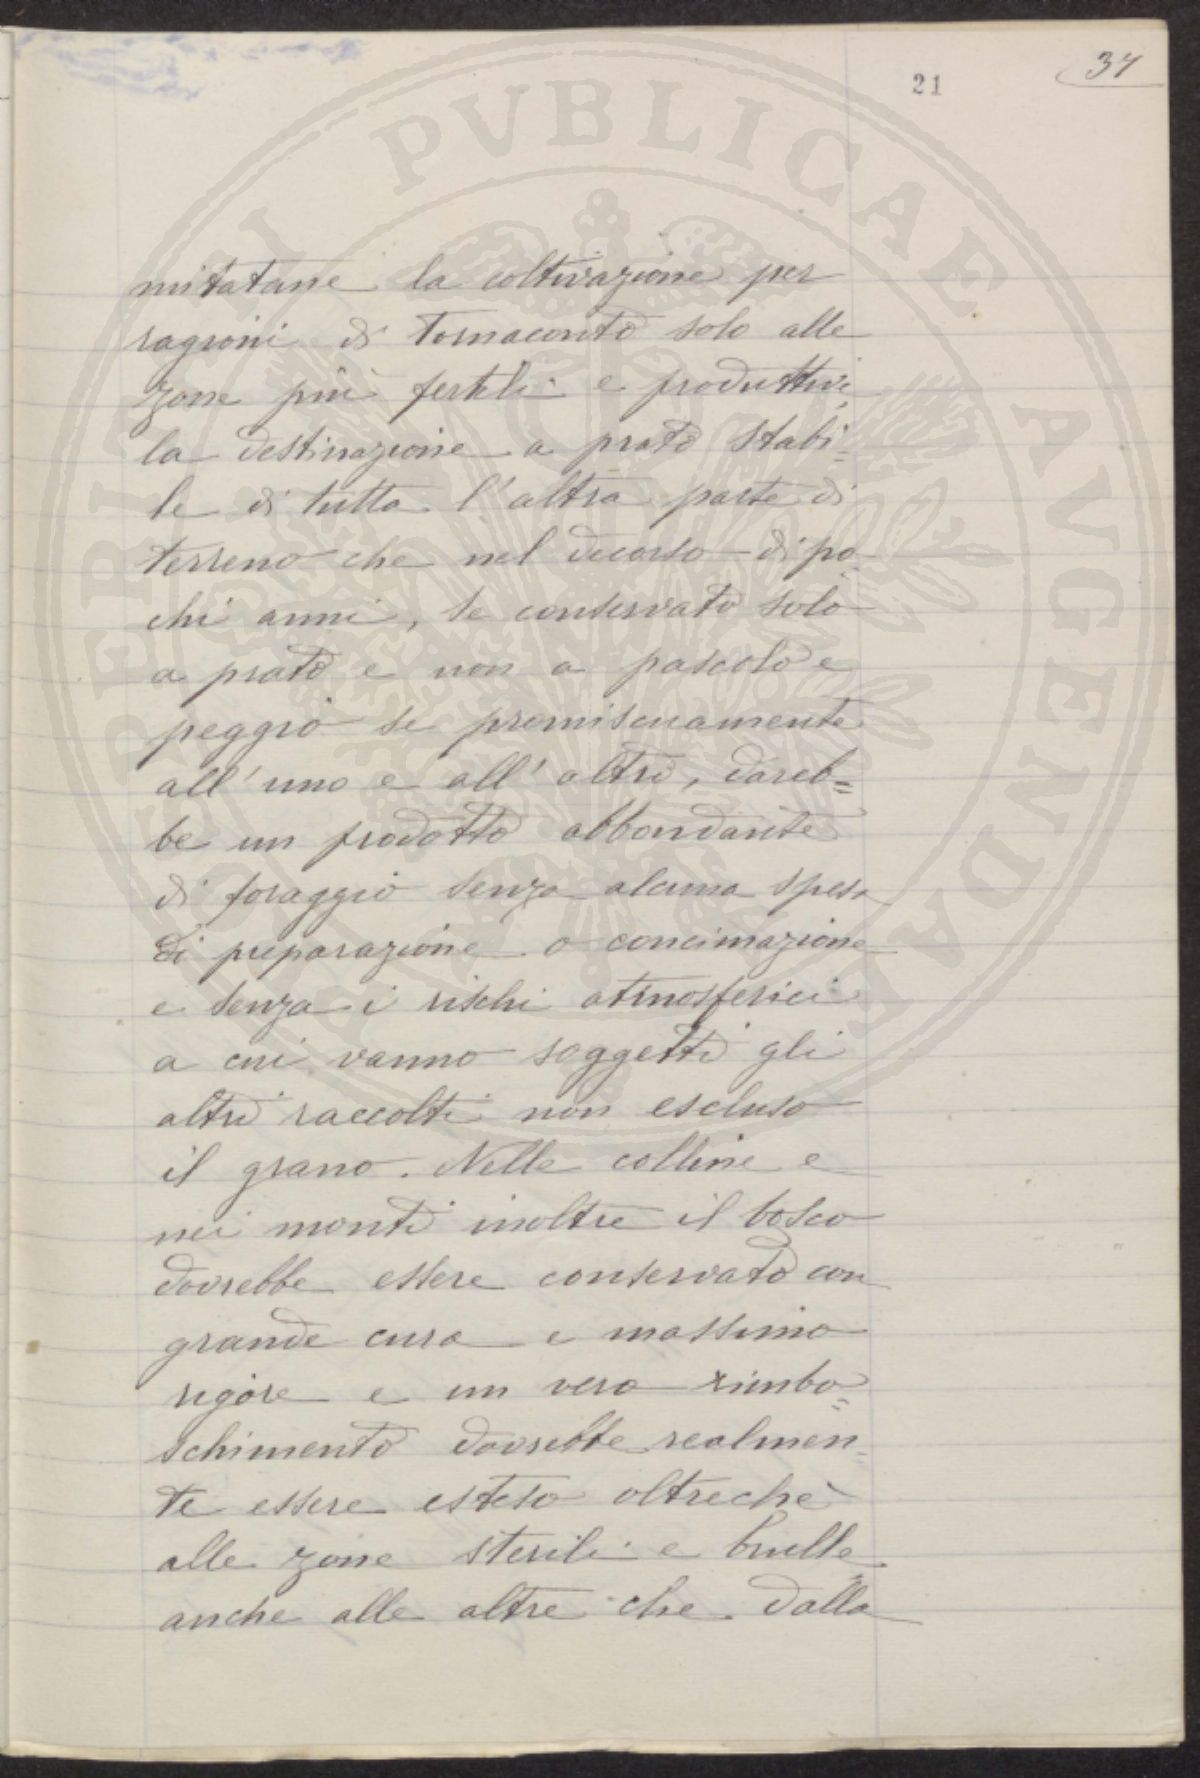 37
21
mitatane la coltivazione per
ragioni di tornaconto solo alle
zone più fertili e produttive,
la destinazione a prato stabi-
le di tutta l'altra parte di
terreno che nel decorso di po-
chi anni, se conservato solo
a prato e non a pascolo e
peggio se promiscuamente
all'uno e all'altro, dareb=
be un prodotto abbondante
di foraggio senza alcuna spesa
di preparazione o concimazione
e senza i rischi atmosferici
a cui vanno soggetti gli
altri raccolti non escluso
il grano. Nelle colline e
nei monti inoltre il bosco
dovrebbe essere conservato con
grande cura e massimo
rigore e un vero rimbo=
schimento dovrebbe realmen-
te essere esteso oltreché
alle zone sterili e brulle
anche alle altre che dalla
PVBLICAE AVGENDAE